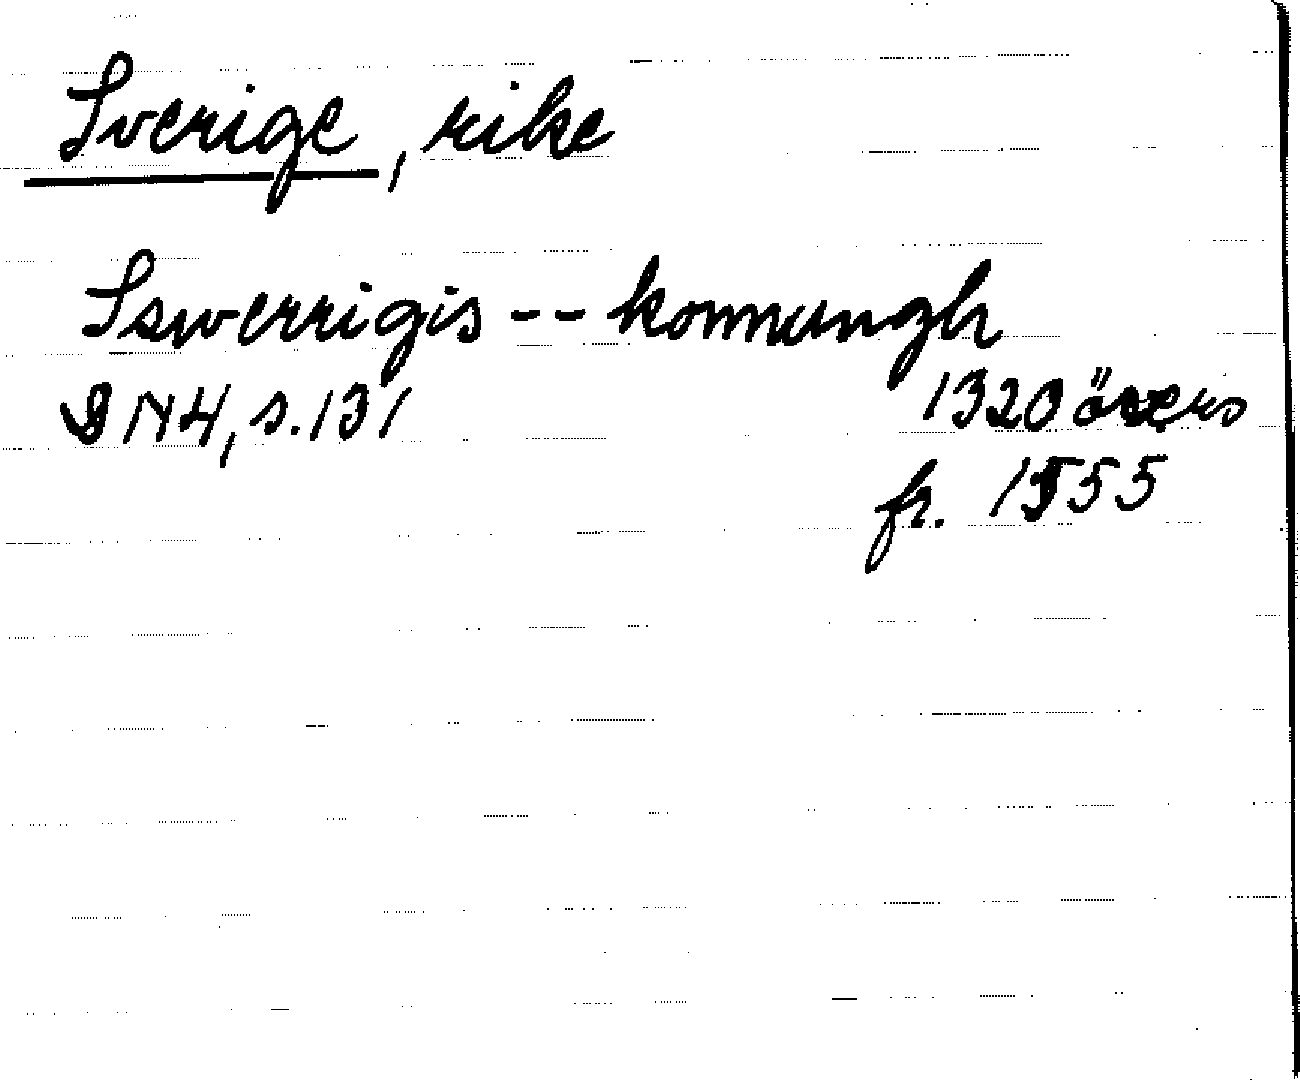 Sverige, rike
Sswerrigis -- konnungh
DN4, s. 131
1320 övers
fr. 1555